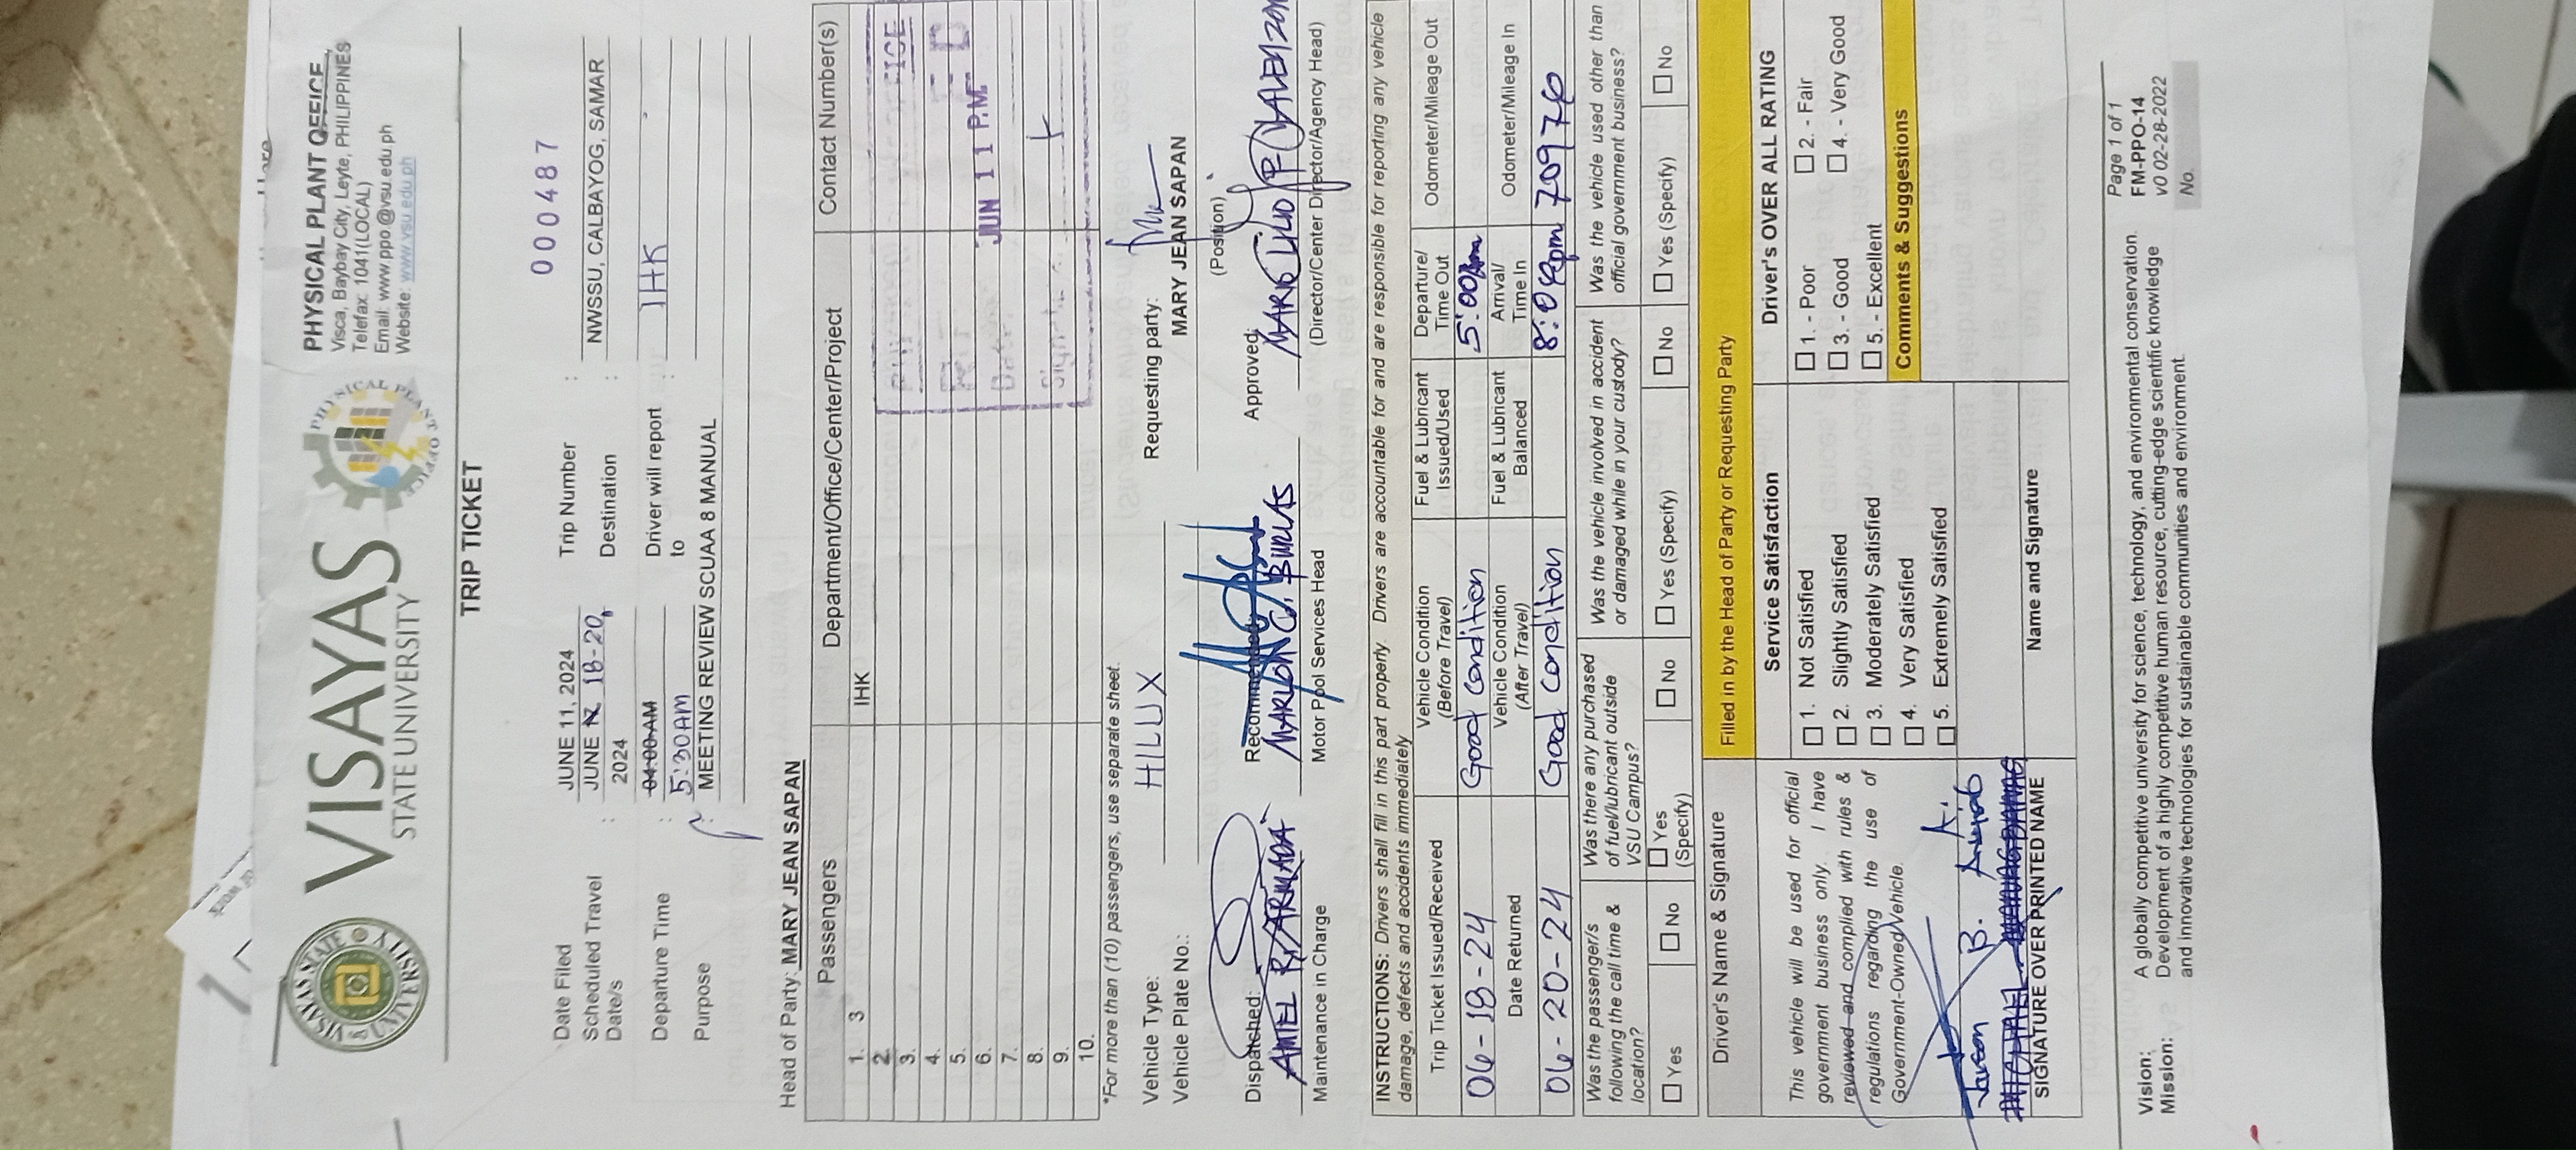 VISAYAS
STATE UNIVERSITY
PHYSICAL PLANT OFFICE
Visca, Baybay City, Leyte, PHILIPPINES
Telefax: 1041(LOCAL)
Email: www.ppo.@vsu.edu.ph
Website: www.vsu.edu.ph
TRIP TICKET
000487
Date Filed JUNE 11, 2024 Trip Number :
Scheduled Travel Date/s : JUNE 12 18-20, 2024 Destination : NWSSU, CALBAYOG, SAMAR
Departure Time : 04:00 AM 5:30AM Driver will report to : IHK
Purpose : MEETING REVIEW SCUAA 8 MANUAL
Head of Party: MARY JEAN SAPAN
Passengers Department/Office/Center/Project Contact Number(s)
1. 3 IHK
2.
3.
4.
5.
6. JUN 11 P.M.
7.
8.
9.
10.
*For more than (10) passengers, use separate sheet.
Vehicle Type: HILUX Requesting party:
Vehicle Plate No.: MARY JEAN SAPAN
(Position)
Dispatched: Recommended: Approved:
MARLON G. BURLAS MARIO LILIO P. VALENZONA
Maintenance in Charge Motor Pool Services Head (Director/Center Director/Agency Head)
INSTRUCTIONS: Drivers shall fill in this part properly. Drivers are accountable for and are responsible for reporting any vehicle
damage, defects and accidents immediately
Trip Ticket Issued/Received Vehicle Condition (Before Travel) Fuel & Lubricant Issued/Used Departure/ Time Out Odometer/Mileage Out
06-18-24 Good Condition 5:00am
Date Returned Vehicle Condition (After Travel) Fuel & Lubricant Balanced Arrival/ Time In Odometer/Mileage In
06-20-24 Good Condition 8:04pm 70976
Was the passenger/s following the call time & location? Was there any purchased of fuel/lubricant outside VSU Campus? Was the vehicle involved in accident or damaged while in your custody? Was the vehicle used other than official government business?
☐ Yes ☐ No ☐ Yes (Specify) ☐ No ☐ Yes (Specify) ☐ No ☐ Yes (Specify) ☐ No
Driver's Name & Signature Filled in by the Head of Party or Requesting Party
Service Satisfaction Driver's OVER ALL RATING
This vehicle will be used for official
government business only. I have
reviewed and complied with rules &
regulations regarding the use of
Government-Owned Vehicle.
☐ 1. Not Satisfied
☐ 2. Slightly Satisfied
☐ 3. Moderately Satisfied
☐ 4. Very Satisfied
☐ 5. Extremely Satisfied
☐ 1. - Poor ☐ 2. - Fair
☐ 3. - Good ☐ 4. - Very Good
☐ 5. - Excellent
Comments & Suggestions
SIGNATURE OVER PRINTED NAME Name and Signature
Vision: A globally competitive university for science, technology, and environmental conservation.
Mission: Development of a highly competitive human resource, cutting-edge scientific knowledge
and innovative technologies for sustainable communities and environment.
Page 1 of 1
FM-PPO-14
v0 02-28-2022
No.